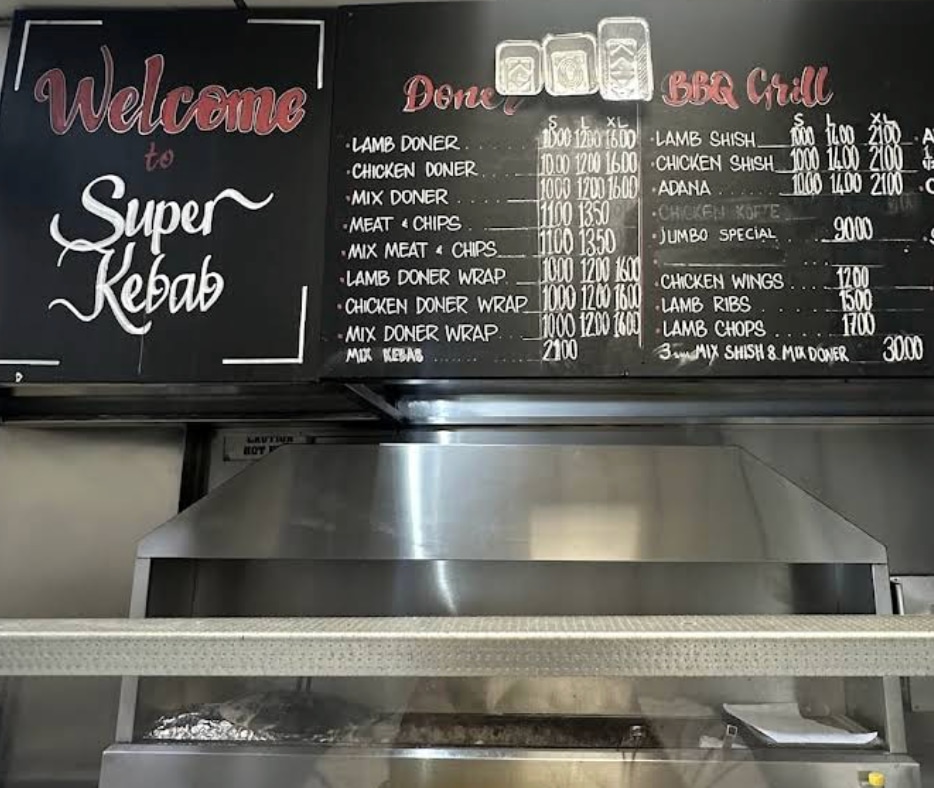 Welcome
to
Super
Kebab
Doner
S L XL
LAMB DONER 10.00 12.00 16.00
CHICKEN DONER 10.00 12.00 16.00
MIX DONER 10.00 12.00 16.00
MEAT & CHIPS 11.00 13.50
MIX MEAT & CHIPS 11.00 13.50
LAMB DONER WRAP 10.00 12.00 16.00
CHICKEN DONER WRAP 10.00 12.00 16.00
MIX DONER WRAP 10.00 12.00 16.00
MIX KEBAB 21.00
BBQ Grill
S L XL
LAMB SHISH 10.00 14.00 21.00
CHICKEN SHISH 10.00 14.00 21.00
ADANA 10.00 14.00 21.00
CHICKEN KOFTE
JUMBO SPECIAL 90.00
CHICKEN WINGS 12.00
LAMB RIBS 15.00
LAMB CHOPS 17.00
MIX SHISH & MIX DONER 30.00
CAUTION
HOT